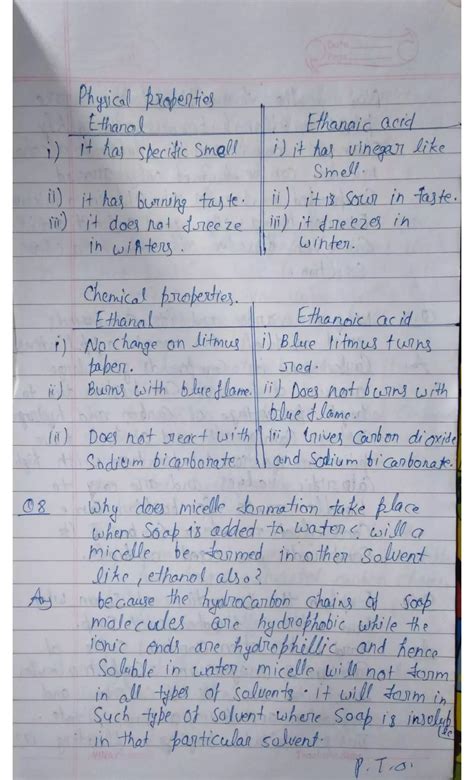 Date
Physical properties
Ethanol | Ethanoic acid
i) it has specific smell | i) it has vinegar like
smell.
ii) it has burning taste. | ii) it is sour in taste.
iii) it does not freeze | iii) it freezes in
in winters. | winter.
Chemical properties.
Ethanol | Ethanoic acid
i) No change on litmus | i) Blue litmus turns
paper. | red.
ii) Burns with blue flame. | ii) Does not burns with
blue flame.
iii) Does not react with | iii) Gives Carbon dioxide
Sodium bicarbonate. | and Sodium bicarbonate.
Q8 Why does micelle formation take place
when Soap is added to water ? will a
micelle be formed in other Solvent
like, ethanol also?
Ans because the hydrocarbon chains of soap
molecules are hydrophobic while the
ionic ends are hydrophillic and hence
Soluble in water. micelle will not form
in all types of solvents. it will form in
Such type of Solvent where Soap is insoluble
in that particular solvent.
P.T.O.